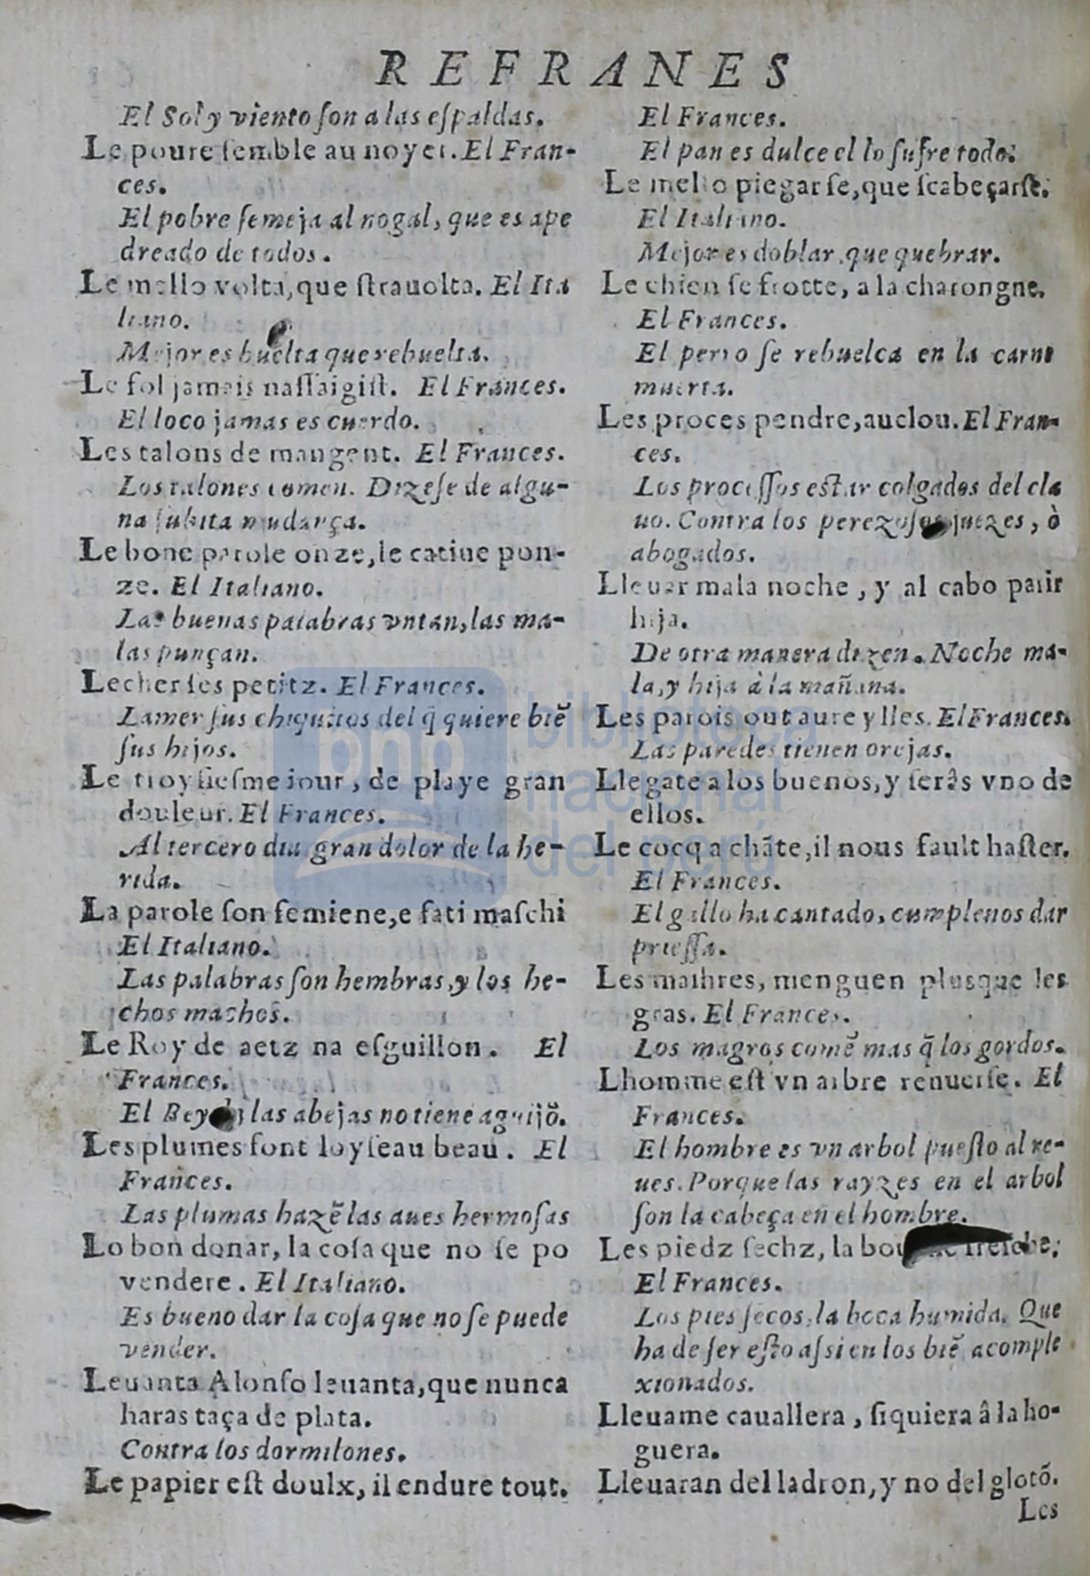 REFRANES
El Sol y viento son a las espaldas.
Le poure semble au noyer. El Fran-
ces.
El pobre semeja al nogal, que es ape
dreado de todos.
Le mello volta, que strauolta. El Ita
liano.
Mejor es buelta que rebuelta.
Le fol jamais nassaigist. El Frances.
El loco jamas es cuerdo.
Les talons de mangent. El Frances.
Los talones comen. Dizese de algu-
na subita mudança.
Le bone parole onze, le catiue pon-
ze. El Italiano.
Las buenas palabras vntan, las ma-
las punçan.
Lecher ses petitz. El Frances.
Lamer sus chiquitos del q̃ quiere biẽ
sus hijos.
Le troysiesme iour, de playe gran
douleur. El Frances.
Al tercero dia gran dolor de la he-
rida.
La parole son femiene, e fati maschi
El Italiano.
Las palabras son hembras, y los he-
chos machos.
Le Roy de aetz na esguillon. El
Frances.
El Rey las abejas no tiene aguijõ.
Les plumes font loyseau beau. El
Frances.
Las plumas hazẽ las aues hermosas
Lo bon donar, la cosa que no se po
vendere. El Italiano.
Es bueno dar la cosa que no se puede
vender.
Leuanta Alonso leuanta, que nunca
haras taça de plata.
Contra los dormilones.
Le papier est doulx, il endure tout.
El Frances.
El pan es dulce el lo sufre todo.
Le mello piegarse, que scabeçarse.
El Italiano.
Mejor es doblar, que quebrar.
Le chien se frotte, a la charongne.
El Frances.
El perro se rebuelca en la carne
muerta.
Les proces pendre, auclou. El Fran-
ces.
Los processos estar colgados del cla
uo. Contra los perezosos juezes, ò
abogados.
Lleuar mala noche, y al cabo parir
hija.
De otra manera dizen. Noche ma-
la, y hija à la mañana.
Les parois out aureylles. El Frances.
Las paredes tienen orejas.
Llegate a los buenos, y serâs vno de
ellos.
Le cocq a chãte, il nous fault haster.
El Frances.
El gallo ha cantado, cumplenos dar
priessa.
Les maihres, menguen plusque les
gras. El Frances.
Los magros comẽ mas q̃ los gordos.
Lhomme est vn arbre renuerse. El
Frances.
El hombre es vn arbol puesto al re-
ues. Porque las rayzes en el arbol
son la cabeça en el hombre.
Les piedz sechz, la fresche.
El Frances.
Los pies secos, la boca humida. Que
ha de ser esto assi en los biẽ acomple
xionados.
Lleuame cauallera, siquiera â la ho-
guera.
Lleuaran del ladron, y no del glotõ.
Les
bnp biblioteca
nacional
del perú